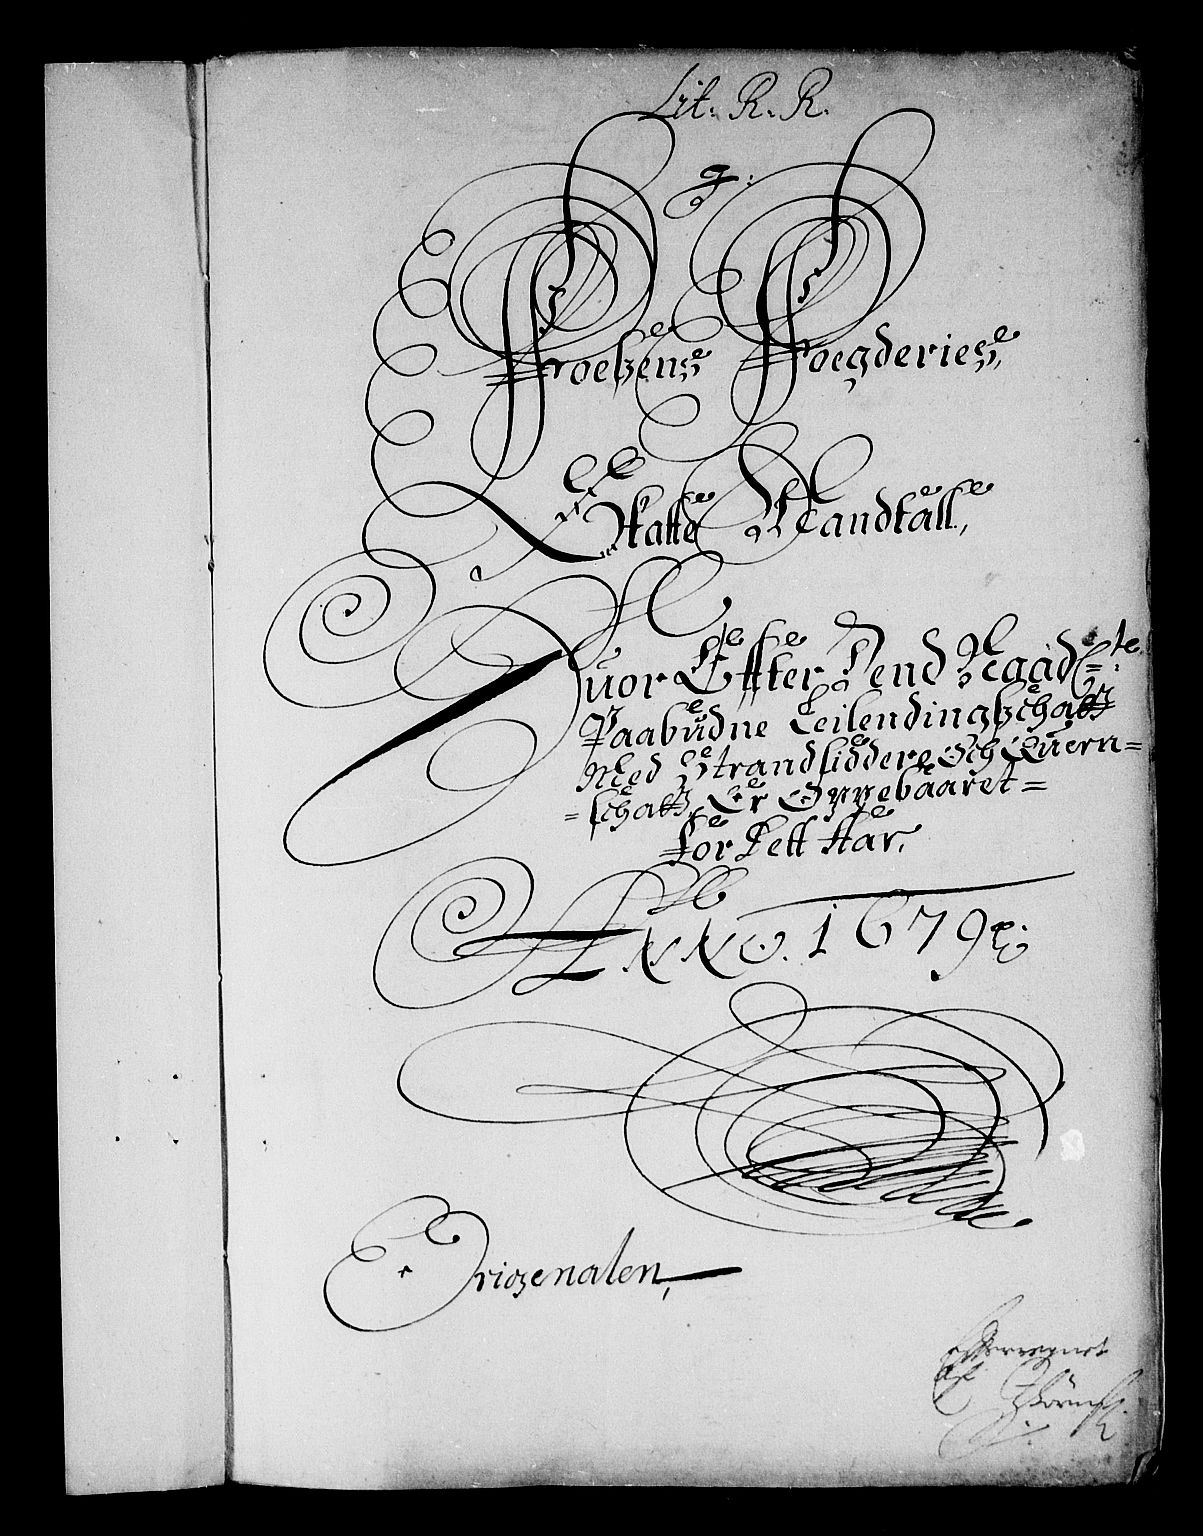 Lit. R. R.
g:
Foesens Foegderies,
Skatte Mandtall,
Huor Effter Dend Naad¢te
Paabudne Leilendingschatt
Med Strandsiddere Och Quern=
=schatt, Er Oppebaaret=
for Dett Aar,
ANNO. 1679
Origenalen,
Efterregnet
af